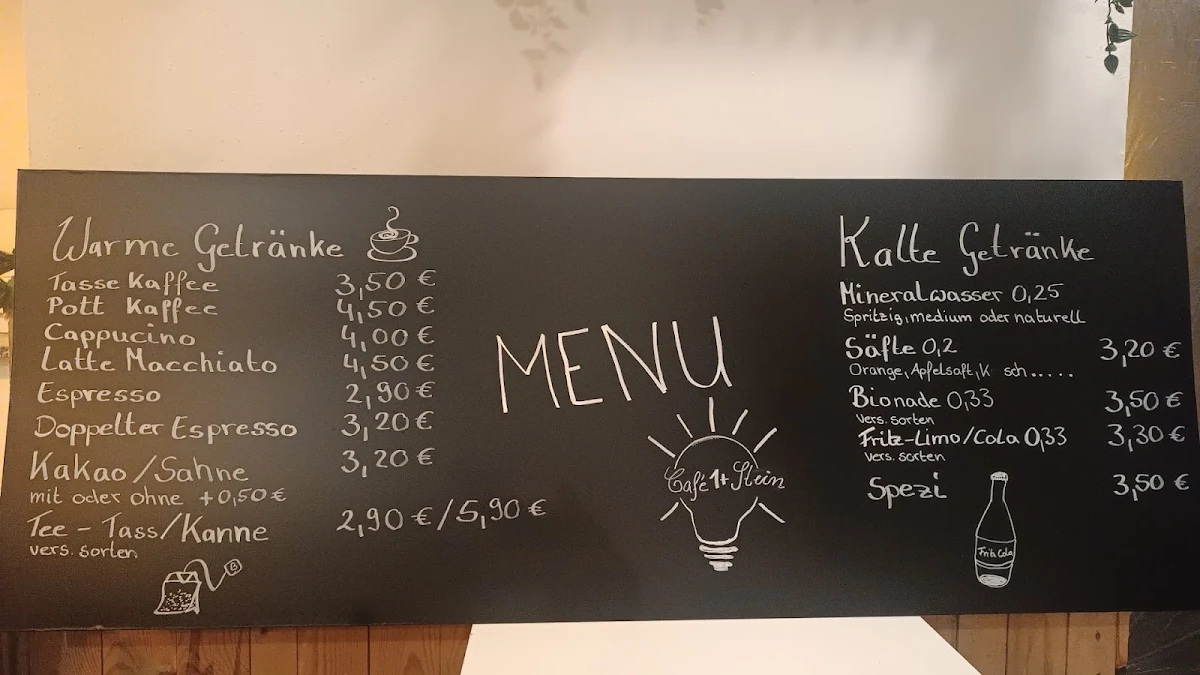 Warme Getränke
Tasse Kaffee 3,50 €
Pott Kaffee 4,50 €
Cappucino 4,00 €
Latte Macchiato 4,50 €
Espresso 2,90 €
Doppelter Espresso 3,20 €
Kakao/Sahne 3,20 €
mit oder ohne +0,50 €
Tee - Tass/Kanne 2,90 €/5,90 €
vers. sorten
MENU
Café 1+ Stein
Kalte Getränke
Mineralwasser 0,25
Spritzig, medium oder naturell
Säfte 0,2 3,20 €
Orange, Apfelsaft, K sch.....
Bionade 0,33 3,50 €
vers. sorten
Fritz-Limo/Cola 0,33 3,30 €
vers. sorten
Spezi 3,50 €
Fritz Cola